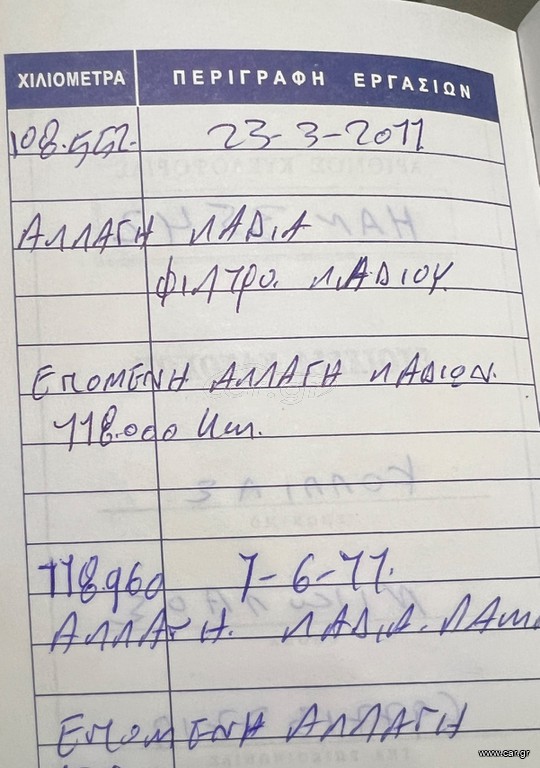 ΧΙΛΙΟΜΕΤΡΑ ΠΕΡΙΓΡΑΦΗ ΕΡΓΑΣΙΩΝ
108.552. 23-3-2011
ΑΛΛΑΓΗ ΛΑΔΙΑ
ΦΙΛΤΡΟ ΛΑΔΙΟΥ
ΕΠΟΜΕΝΗ ΑΛΛΑΓΗ ΛΑΔΙΩΝ.
118.000 Km.
118960 7-6-11.
ΑΛΛΑΓΗ. ΛΑΔΙΑ.
ΕΠΟΜΕΝΗ ΑΛΛΑΓΗ
www.car.gr